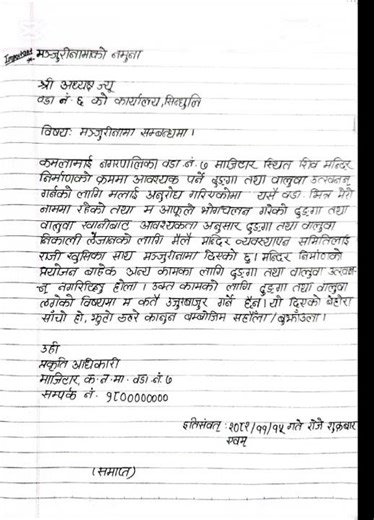 Important मञ्जुरीनामाको नमुना
श्री अध्यक्ष ज्यू
वडा नं. ६ को कार्यालय, सिन्धुलि
विषय: मञ्जुरीनामा सम्बन्धमा ।
कमलामाई नगरपालिका वडा नं. ७ माझिटार स्थित शिव मन्दिर
निर्माणको क्रममा आवश्यक पर्ने ढुङ्गा तथा वालुवा उत्खनन्
गर्नको लागि मलाई अनुरोध गरिएकोमा यसै वडा भित्र मेरो
नाममा रहेको तथा म आफूले भोगचलन गरेको ढुङ्गा तथा
वालुवा खानीबाट आवश्यकता अनुसार ढुङ्गा तथा वालुवा
निकाली लैजानको लागि मैले मन्दिर व्यवस्थापन समितिलाई
राजी खुसिका साथ मञ्जुरीनामा दिएको छु। मन्दिर निर्माणको
प्रयोजन बाहेक अन्य कामका लागि ढुङ्गा तथा वालुवा उत्खन-
न् नगरिदिनु होला । उक्त कामको लागि ढुङ्गा तथा वालुवा
लगेको विषयमा म कतै उजुरबाजुर गर्ने छैन। यो दिएको बेहोरा
साँचो हो, झुठो ठहरे कानुन बमोजिम सहौंला / बुझाउँला ।
उही
प्रकृति अधिकारी
माझिटार, क. न. मा. वडा नं. ७
सम्पर्क नं. ९८००००००००
इतिसंवत् : २०८१/११/१५ गते रोजे शुक्रबार
(समाप्त)